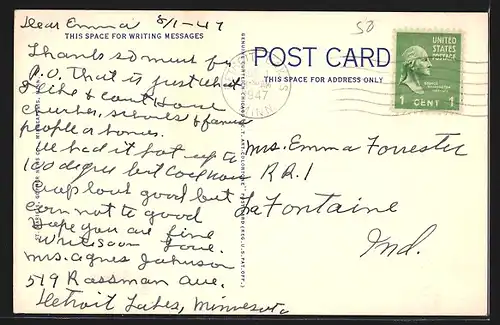 Dear Emma 8/1-47
50
THIS SPACE FOR WRITING MESSAGES
POST CARD
THIS SPACE FOR ADDRESS ONLY
UNITED STATES
POSTAGE
1 CENT 1
1947
MINN
Thanks so much for
P.O. That is just what
I like & Court House
churches, schools & famous
people homes.
We had it hot up to
100 degrees but cool now
crop look good but
corn not to good
Hope you are fine
Write soon Love
Mrs. Agnes Johnson
519 Rossman Ave.
Detroit Lakes, Minnesota
Mrs. Emma Forrester
R.R. 1
LaFontaine
Ind.